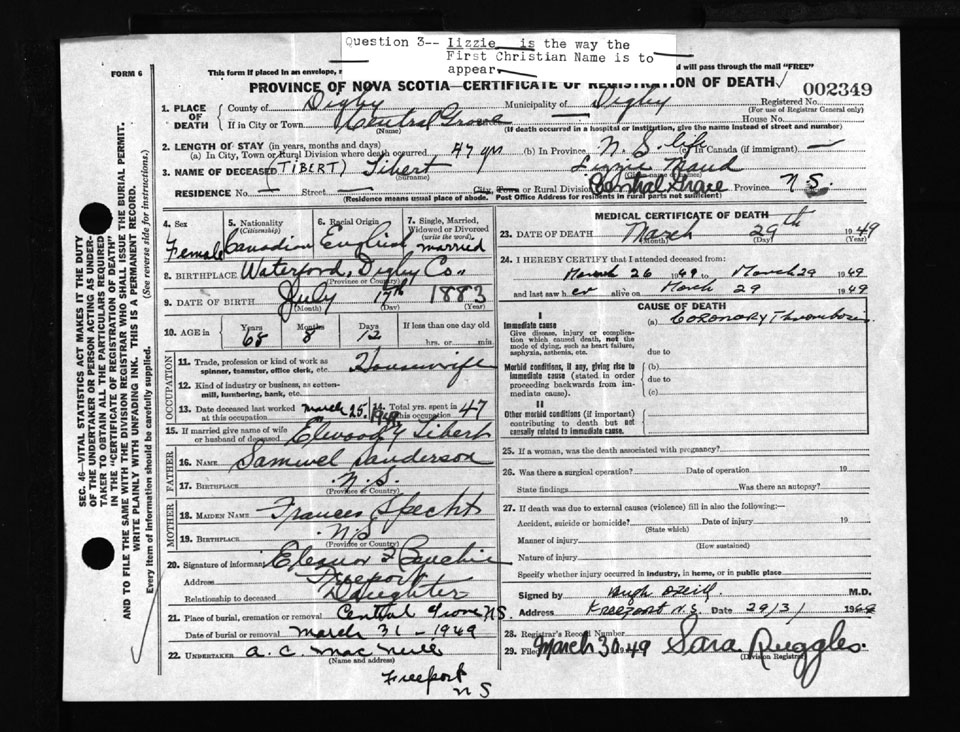 Question 3-- Iizzie is the way the
First Christian Name is to
appear.
FORM 6
This form if placed in an envelope,
d will pass through the mail "FREE"
PROVINCE OF NOVA SCOTIA—CERTIFICATE OF REGISTRATION OF DEATH
002349
1. PLACE OF DEATH
County of Digby Municipality of Digby Registered No.
(For use of Registrar General only)
If in City or Town Central Grove House No.
(Name) (If death occurred in a hospital or institution, give the name instead of street and number)
2. LENGTH OF STAY (in years, months and days)
(a) In City, Town or Rural Division where death occurred 47 yrs (b) In Province N.S. life (c) In Canada (if immigrant) —
3. NAME OF DECEASED (TIBERT) Tibert Lizzie Maud
(Surname)
RESIDENCE No. — Street — City, Town or Rural Division Central Grove Province N.S.
(Residence means usual place of abode. Post Office Address for residents in rural parts not sufficient)
SEC. 46—VITAL STATISTICS ACT MAKES IT THE DUTY
OF THE UNDERTAKER OR PERSON ACTING AS UNDER-
TAKER TO OBTAIN ALL THE PARTICULARS REQUIRED
IN THE "CERTIFICATE OF REGISTRATION OF DEATH"
AND TO FILE THE SAME WITH THE DIVISION REGISTRAR WHO SHALL ISSUE THE BURIAL PERMIT.
WRITE PLAINLY WITH UNFADING INK. THIS IS A PERMANENT RECORD.
Every item of information should be carefully supplied. (See reverse side for instructions.)
4. Sex
Female
5. Nationality
(Citizenship)
Canadian
6. Racial Origin
English
7. Single, Married,
Widowed or Divorced
(write the word)
married
8. BIRTHPLACE Waterford, Digby Co.,
(Province or Country)
9. DATE OF BIRTH July 17th 1883
(Month) (Day) (Year)
10. AGE in Years Months Days If less than one day old
65 8 12 hrs. or min.
OCCUPATION
11. Trade, profession or kind of work as
spinner, teamster, office clerk, etc. Housewife
12. Kind of industry or business, as cotton-
mill, lumbering, bank, etc.
13. Date deceased last worked
at this occupation March 25, 1949
14. Total yrs. spent in
this occupation 47
15. If married give name of wife
or husband of deceased Elwood Y Tibert
FATHER
16. NAME Samuel Sanderson
17. BIRTHPLACE N.S.
(Province or Country)
MOTHER
18. MAIDEN NAME Frances Specht
19. BIRTHPLACE N.S.
(Province or Country)
20. Signature of informant Eleanor F
Address Freeport
Relationship to deceased Daughter
21. Place of burial, cremation or removal Central Grove N.S.
Date of burial or removal March 31 - 1949
22. UNDERTAKER A. C. Mac Neill
(Name and address)
Freeport
N S
MEDICAL CERTIFICATE OF DEATH
23. DATE OF DEATH March 29th 1949
(Month) (Day) (Year)
24. I HEREBY CERTIFY that I attended deceased from
March 26 1949 to March 29 1949
and last saw her alive on March 29 1949
CAUSE OF DEATH
I
Immediate cause (a) CORONARY Thrombosis
Give disease, injury or complica-
tion which caused death, not the
mode of dying, such as heart failure,
asphyxia, asthenia, etc. due to
Morbid conditions, if any, giving rise to (b)
immediate cause (stated in order due to
proceeding backwards from im-
mediate cause). (c)
II
Other morbid conditions (if important)
contributing to death but not
causally related to immediate cause.
25. If a woman, was the death associated with pregnancy?
26. Was there a surgical operation? Date of operation 19
State findings Was there an autopsy?
27. If death was due to external causes (violence) fill in also the following:—
Accident, suicide or homicide? Date of injury 19
(State which)
Manner of injury
(How sustained)
Nature of injury
Specify whether injury occurred in industry, in home, or in public place
Signed by Hugh O'Neill M.D.
Address Freeport N.S. Date 29/3/
28. Registrar's Record Number
29. Filed March 30 1949 Sara Ruggles.
(Division Registrar)